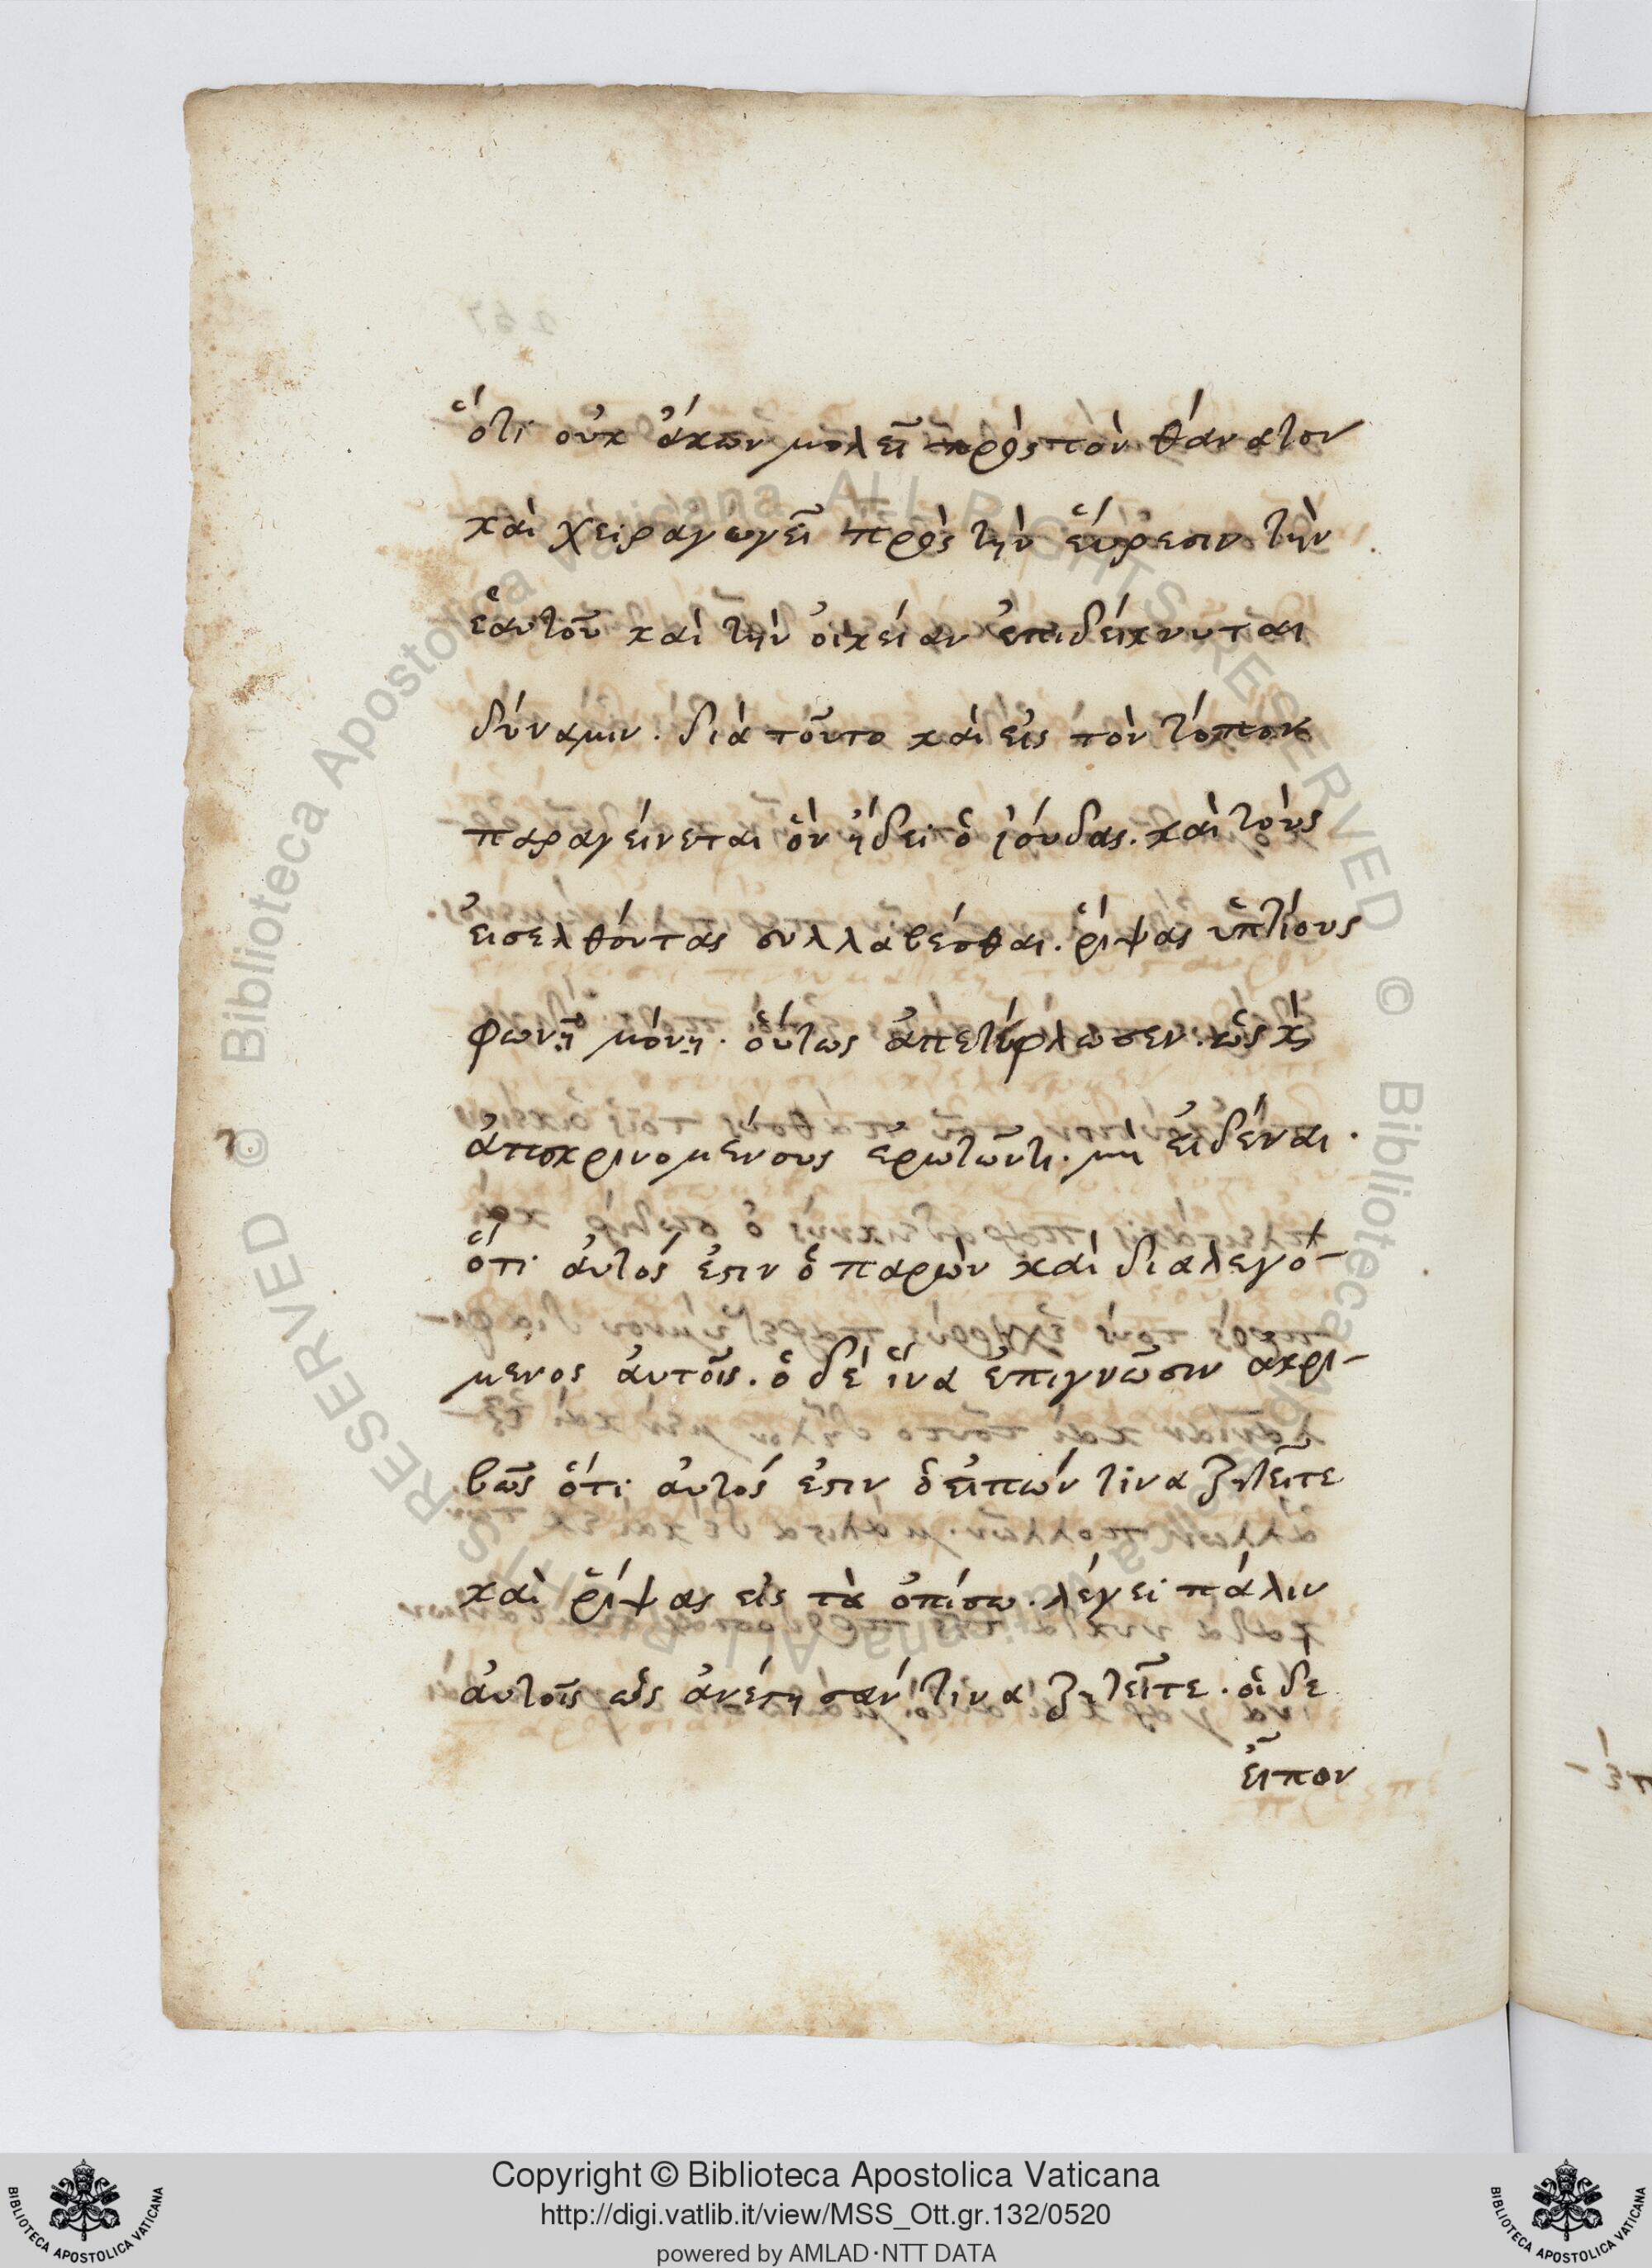 ὅτι οὐκ ἄκων μολεῖ πρὸς τὸν θάνατον
καὶ χειραγωγεῖ πρὸς τὴν ἕυρεσιν τὴν
ἑαυτοῦ καὶ τὴν ὀικείαν ἐπιδείκνυται
δύναμιν. διὰ τοῦτο καὶ εἰς τὸν τόπον
παραγείνεται ὃν ἤδει ὁ ἰούδας. καὶ τοὺς
εἰσελθόντας συλλαβέσθαι. ῥίψας ὑπτίους
φωνῇ μόνῃ. ὅυτως ἀπετύφλωσεν. ὡς κ̀
ἀποκρινομένους ἐρωτῶντι. μὴ ἐιδέναι.
ὅτι ἀυτός ἐστιν ὁ παρὼν καὶ διαλεγό-
μενος ἀυτοῖς. ὁ δὲ ἵνα ἐπιγνῶσιν ακρι-
βῶς ὅτι ἀυτός ἐστιν ὁ ἐιπών τίνα ζητεῖτε
καὶ ῥίψας εἰς τὰ ὀπίσω. λέγει πάλιν
ἀυτοῖς ὡς ἀνέστησαν τίνα ζητεῖτε. οἱ δε
ἐῖπον
Copyright © Biblioteca Apostolica Vaticana
http://digi.vatlib.it/view/MSS_Ott.gr.132/0520
powered by AMLAD·NTT DATA
BIBLIOTECA APOSTOLICA VATICANA
BIBLIOTECA APOSTOLICA VATICANA